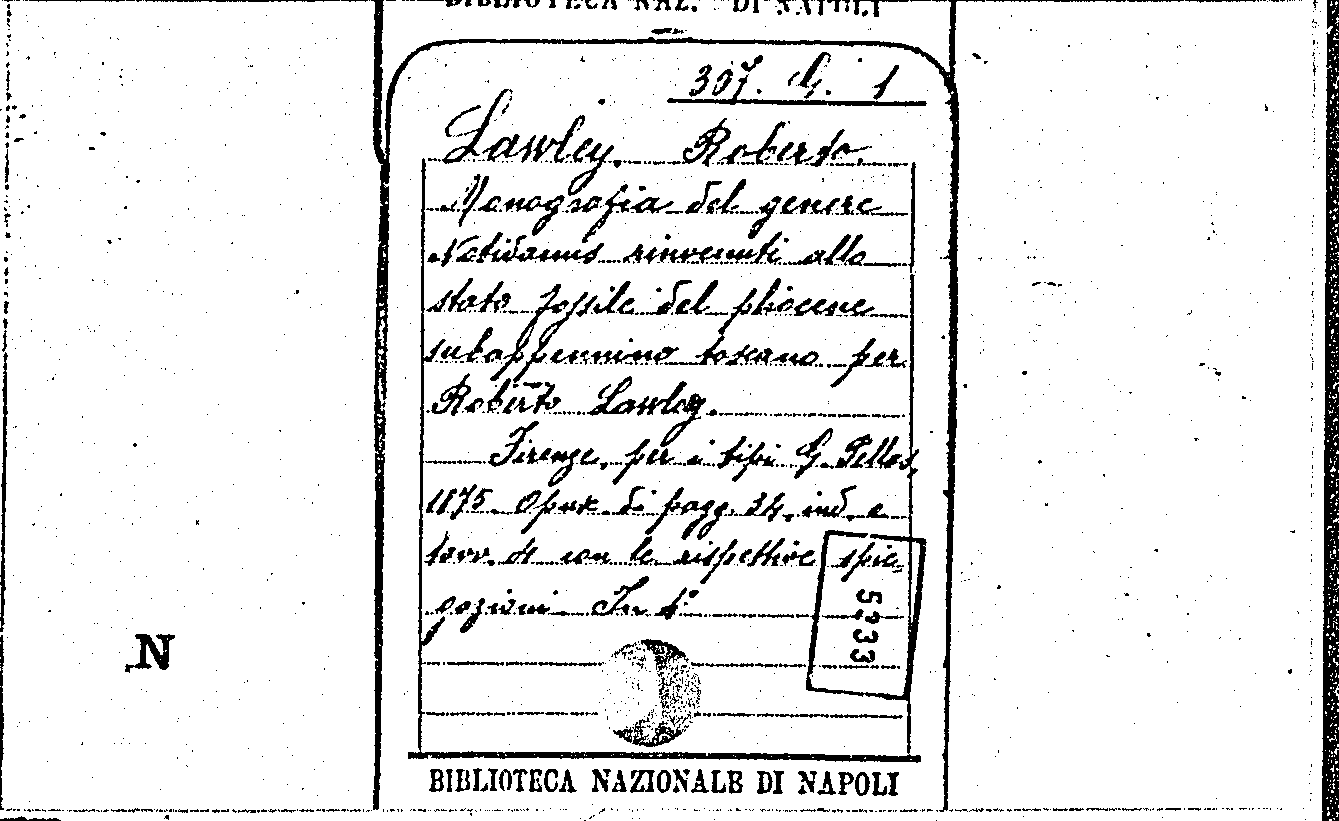 BIBLIOTECA NAZ. DI NAPOLI
307. G. 1
Lawley, Roberto.
Monografia del genere
Notidanus rinvenuti allo
stato fossile del pliocene
subappennino toscano per
Roberto Lawley.
Firenze, per i tipi G. Pellas,
1875. Opusc. di pagg. 34, ind. e
tavv. 4 con le rispettive spie-
gazioni. In 4°
5233
N
BIBLIOTECA NAZIONALE DI NAPOLI